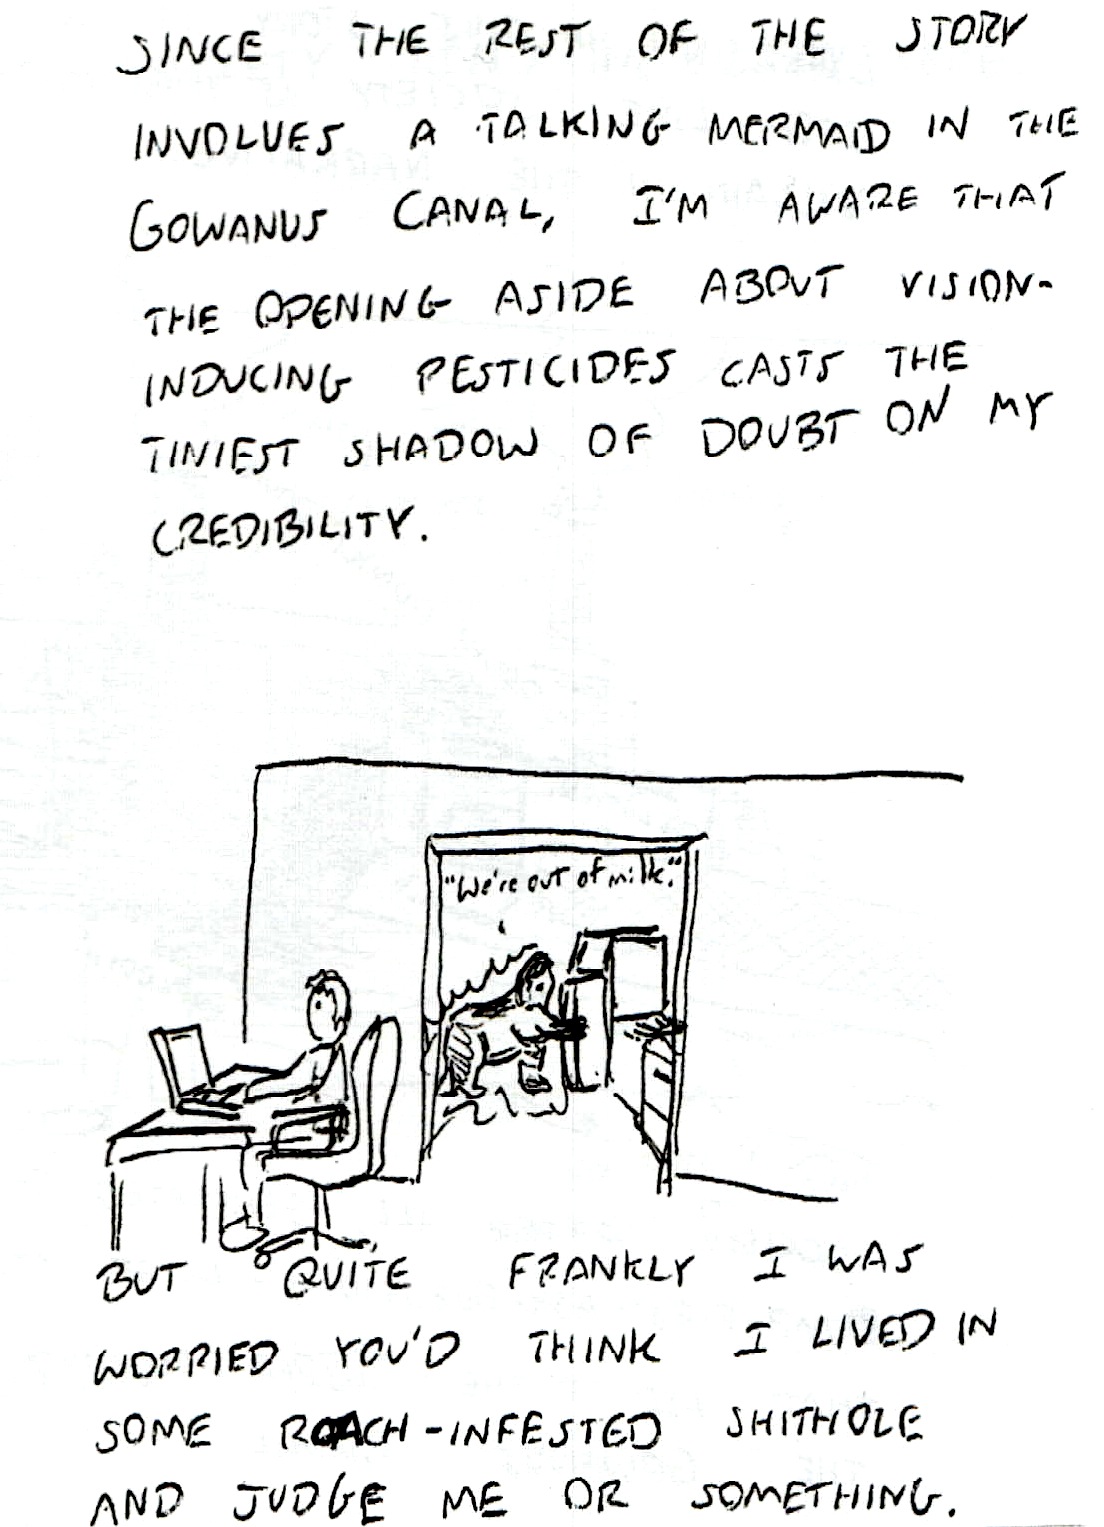 SINCE THE REST OF THE STORY
INVOLVES A TALKING MERMAID IN THE
GOWANUS CANAL, I'M AWARE THAT
THE OPENING ASIDE ABOUT VISION-
INDUCING PESTICIDES CASTS THE
TINIEST SHADOW OF DOUBT ON MY
CREDIBILITY.
"We're out of milk."
BUT QUITE FRANKLY I WAS
WORRIED YOU'D THINK I LIVED IN
SOME ROACH-INFESTED SHITHOLE
AND JUDGE ME OR SOMETHING.